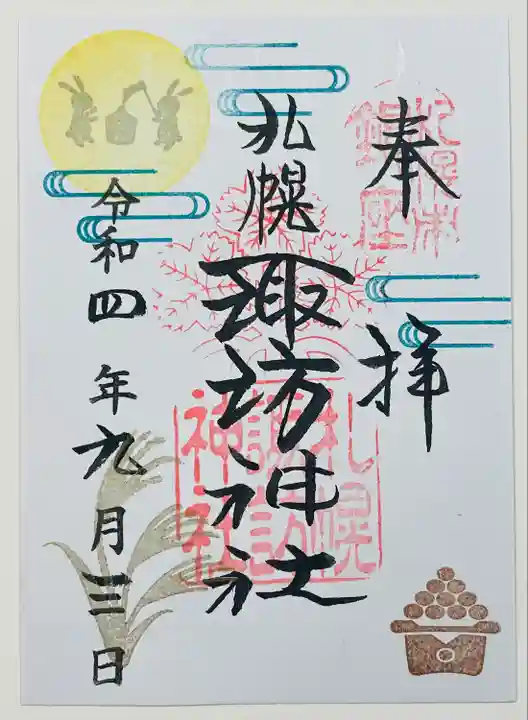 奉拝
札幌市
鎮座
札幌諏訪神社
札幌
諏訪
神社
令和四年九月三日